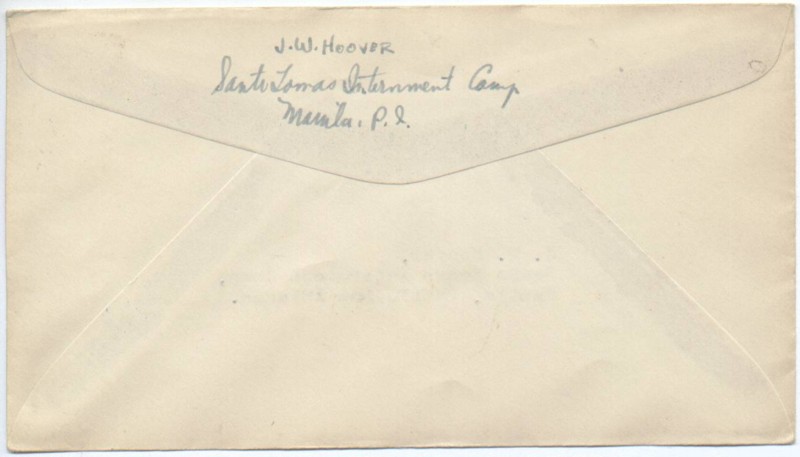 J.W. HOOVER
Santo Tomas Internment Camp
Manila, P.I.